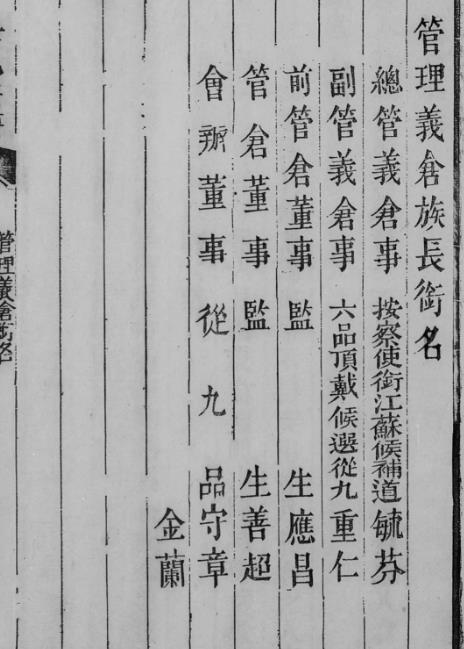 管理義倉族長銜名
總管義倉事 按察使銜江蘇候補道毓芬
副管義倉事 六品頂戴候選從九重仁
前管倉董事監 生應昌
管倉董事監 生善超
會辦董事從九品守章
金蘭
管理義倉銜名